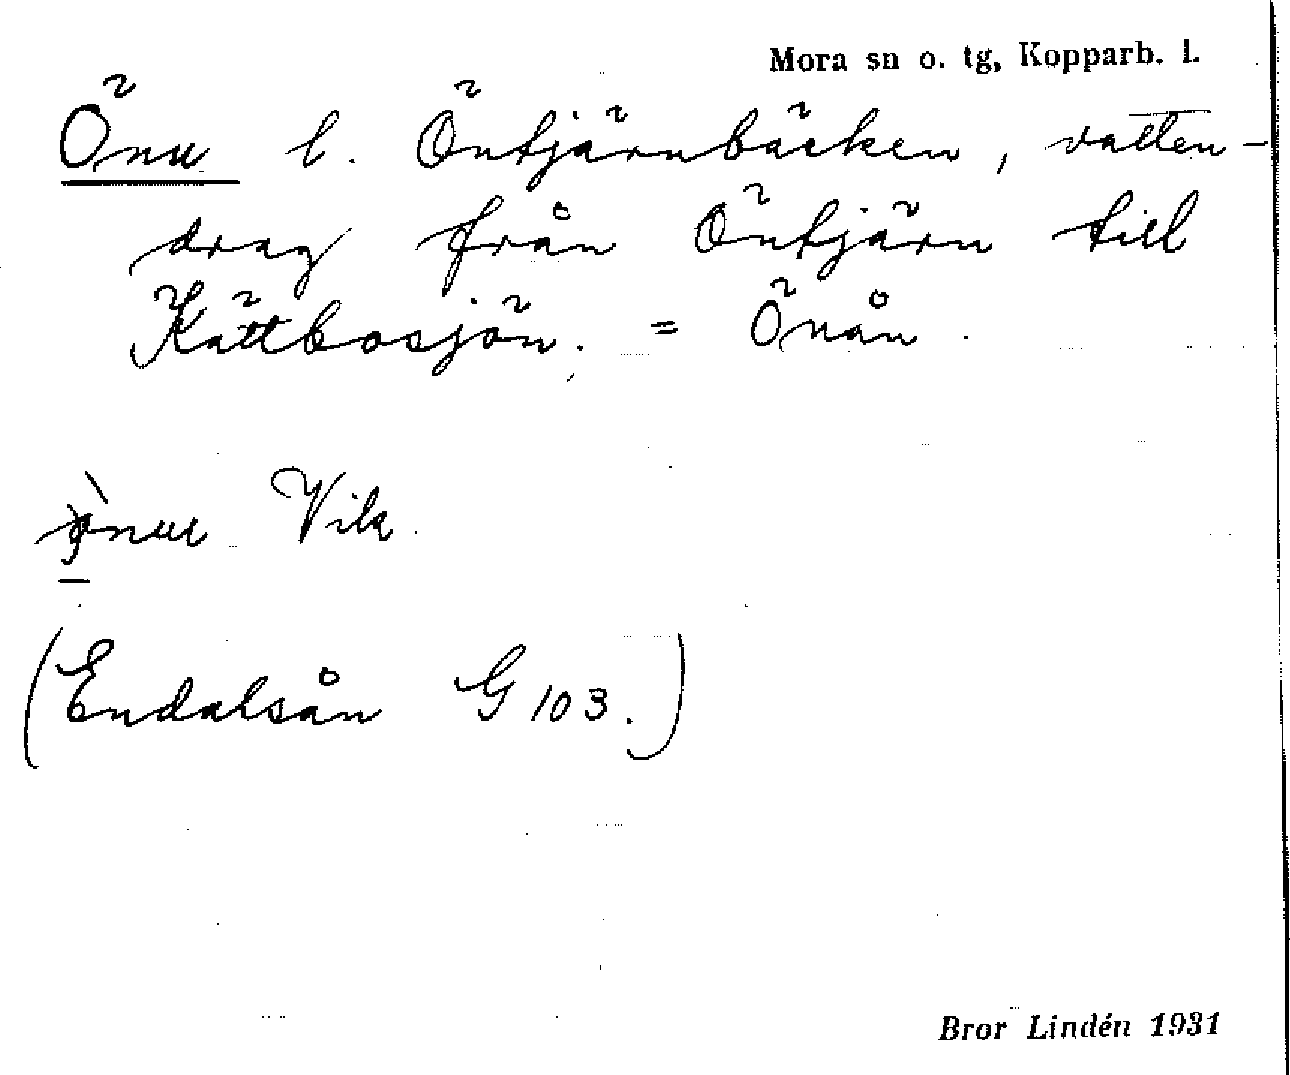 Mora sn o. tg, Kopparb. l.
Önu l. Öntjärnbäcken, vatten-
drag från Öntjärn till
Kättbosjön. = Önån.
Vik.
(Endalsån G 103.)
Bror Lindén 1931